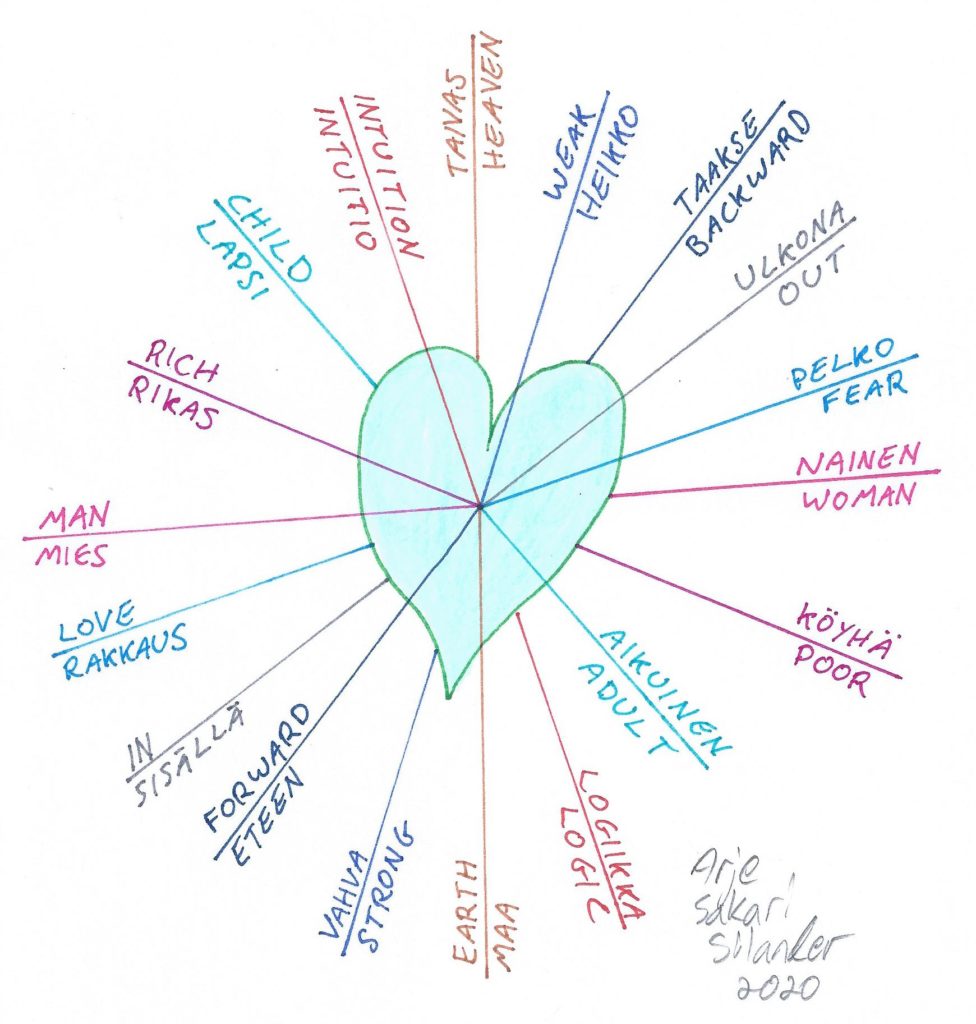 TAIVAS
HEAVEN
WEAK
HEIKKO
TAAKSE
BACKWARD
ULKONA
OUT
PELKO
FEAR
NAINEN
WOMAN
KÖYHÄ
POOR
AIKUINEN
ADULT
LOGIIKKA
LOGIC
EARTH
MAA
VAHVA
STRONG
FORWARD
ETEEN
IN
SISÄLLÄ
LOVE
RAKKAUS
MAN
MIES
RICH
RIKAS
CHILD
LAPSI
INTUITION
INTUITIO
Arje
Sakari
Silander
2020